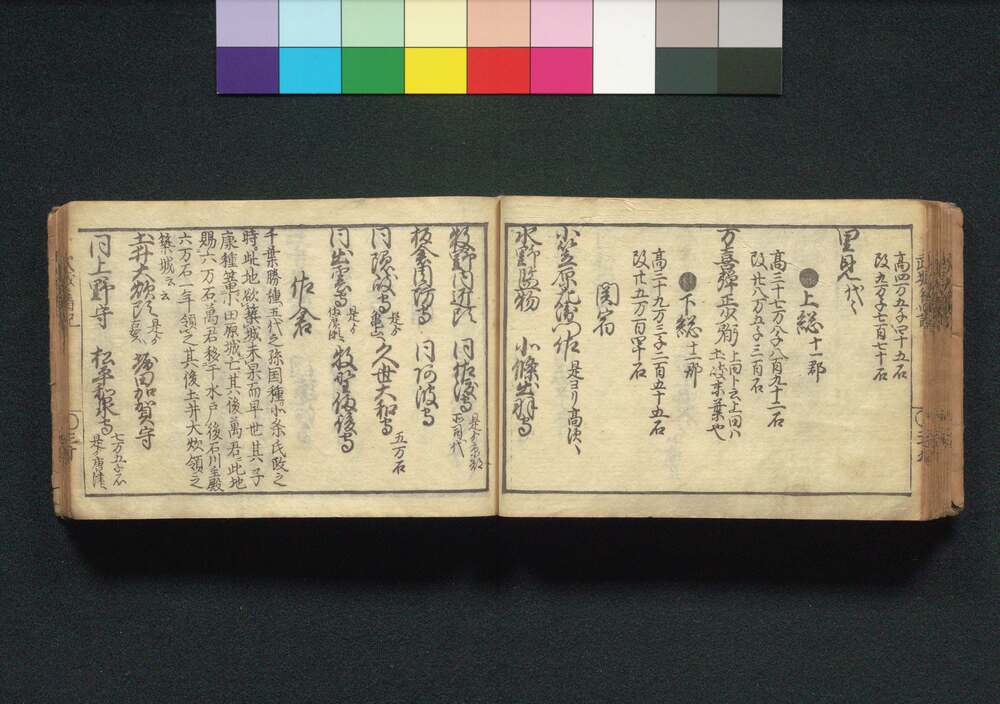 高四万五千四十五石
改九万千七百七十石
里見代々
上総 十一郡
高三十七万八千八百九十二石
改廿八万五千三百石
万喜弾正少弼 上向ト云上田ハ
土岐末葉也
下総 十二郡
高三十九万三千二百五十五石
改廿五万百四十石
関宿
小笠原左衛門佐 是ヨリ高須へ
水野監物 小條出羽守
牧野内匠頭 同佐渡守
板倉周防守 同阿波守
同隠岐守 久世大和守 五万石
同出雲守 牧野備後守
佐倉
千葉勝種五代之孫国種小条氏政之
時此地欲築城未果而早世其子
康種小田原城亡其後萬君此地
賜六万石萬君移于水戸後石川主殿
六万石一年領之其後土井大炊領之
築城云云
土井大炊頭 堀田加賀守
同上野守 松平和泉守 七万五千石
是ゟ唐津へ